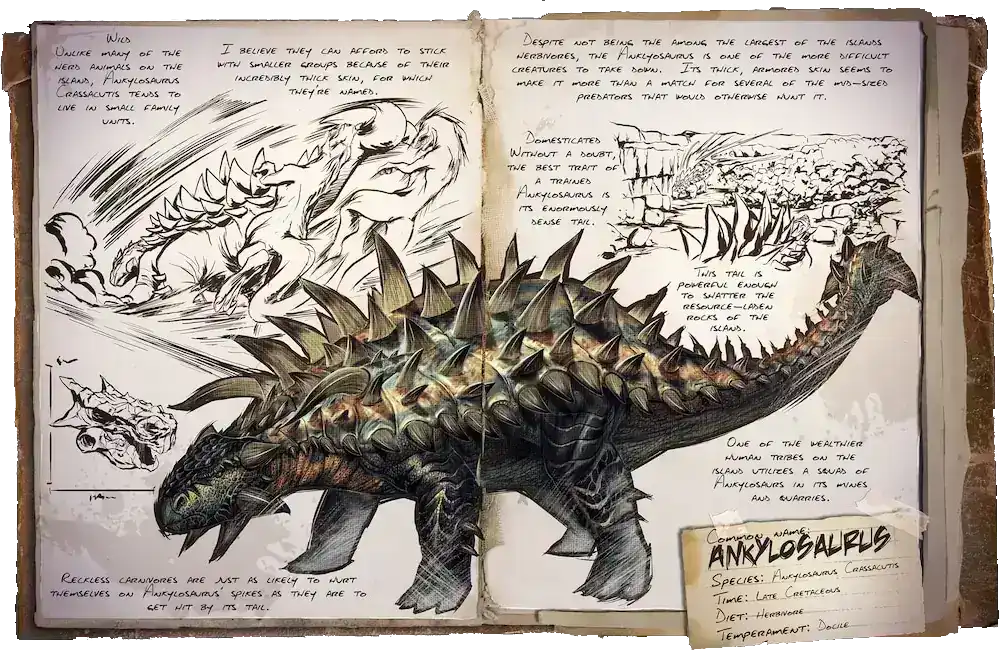 Wild
Unlike many of the
herd animals on the
island, Ankylosaurus
Crassacutis tends to
live in small family
units.
I believe they can afford to stick
with smaller groups because of their
incredibly thick skin, for which
they're named.
Despite not being the among the largest of the islands
herbivores, the Anklyosaurus is one of the more difficult
creatures to take down. Its thick, armored skin seems to
make it more than a match for several of the mid-sized
predators that would otherwise hunt it.
Domesticated
Without a doubt,
the best trait of
a trained
Ankylosaurus is
its enormously
dense tail.
This tail is
powerful enough
to shatter the
resource-laden
rocks of the
island.
One of the wealthier
human tribes on the
island utilizes a squad of
Ankylosaurs in its mines
and quarries.
Reckless carnivores are just as likely to hurt
themselves on Ankylosaurus' spikes as they are to
get hit by its tail.
Common name:
Ankylosaurus
Species: Ankylosaurus Crassacutis
Time: Late Cretaceous
Diet: Herbivore
Temperament: Docile